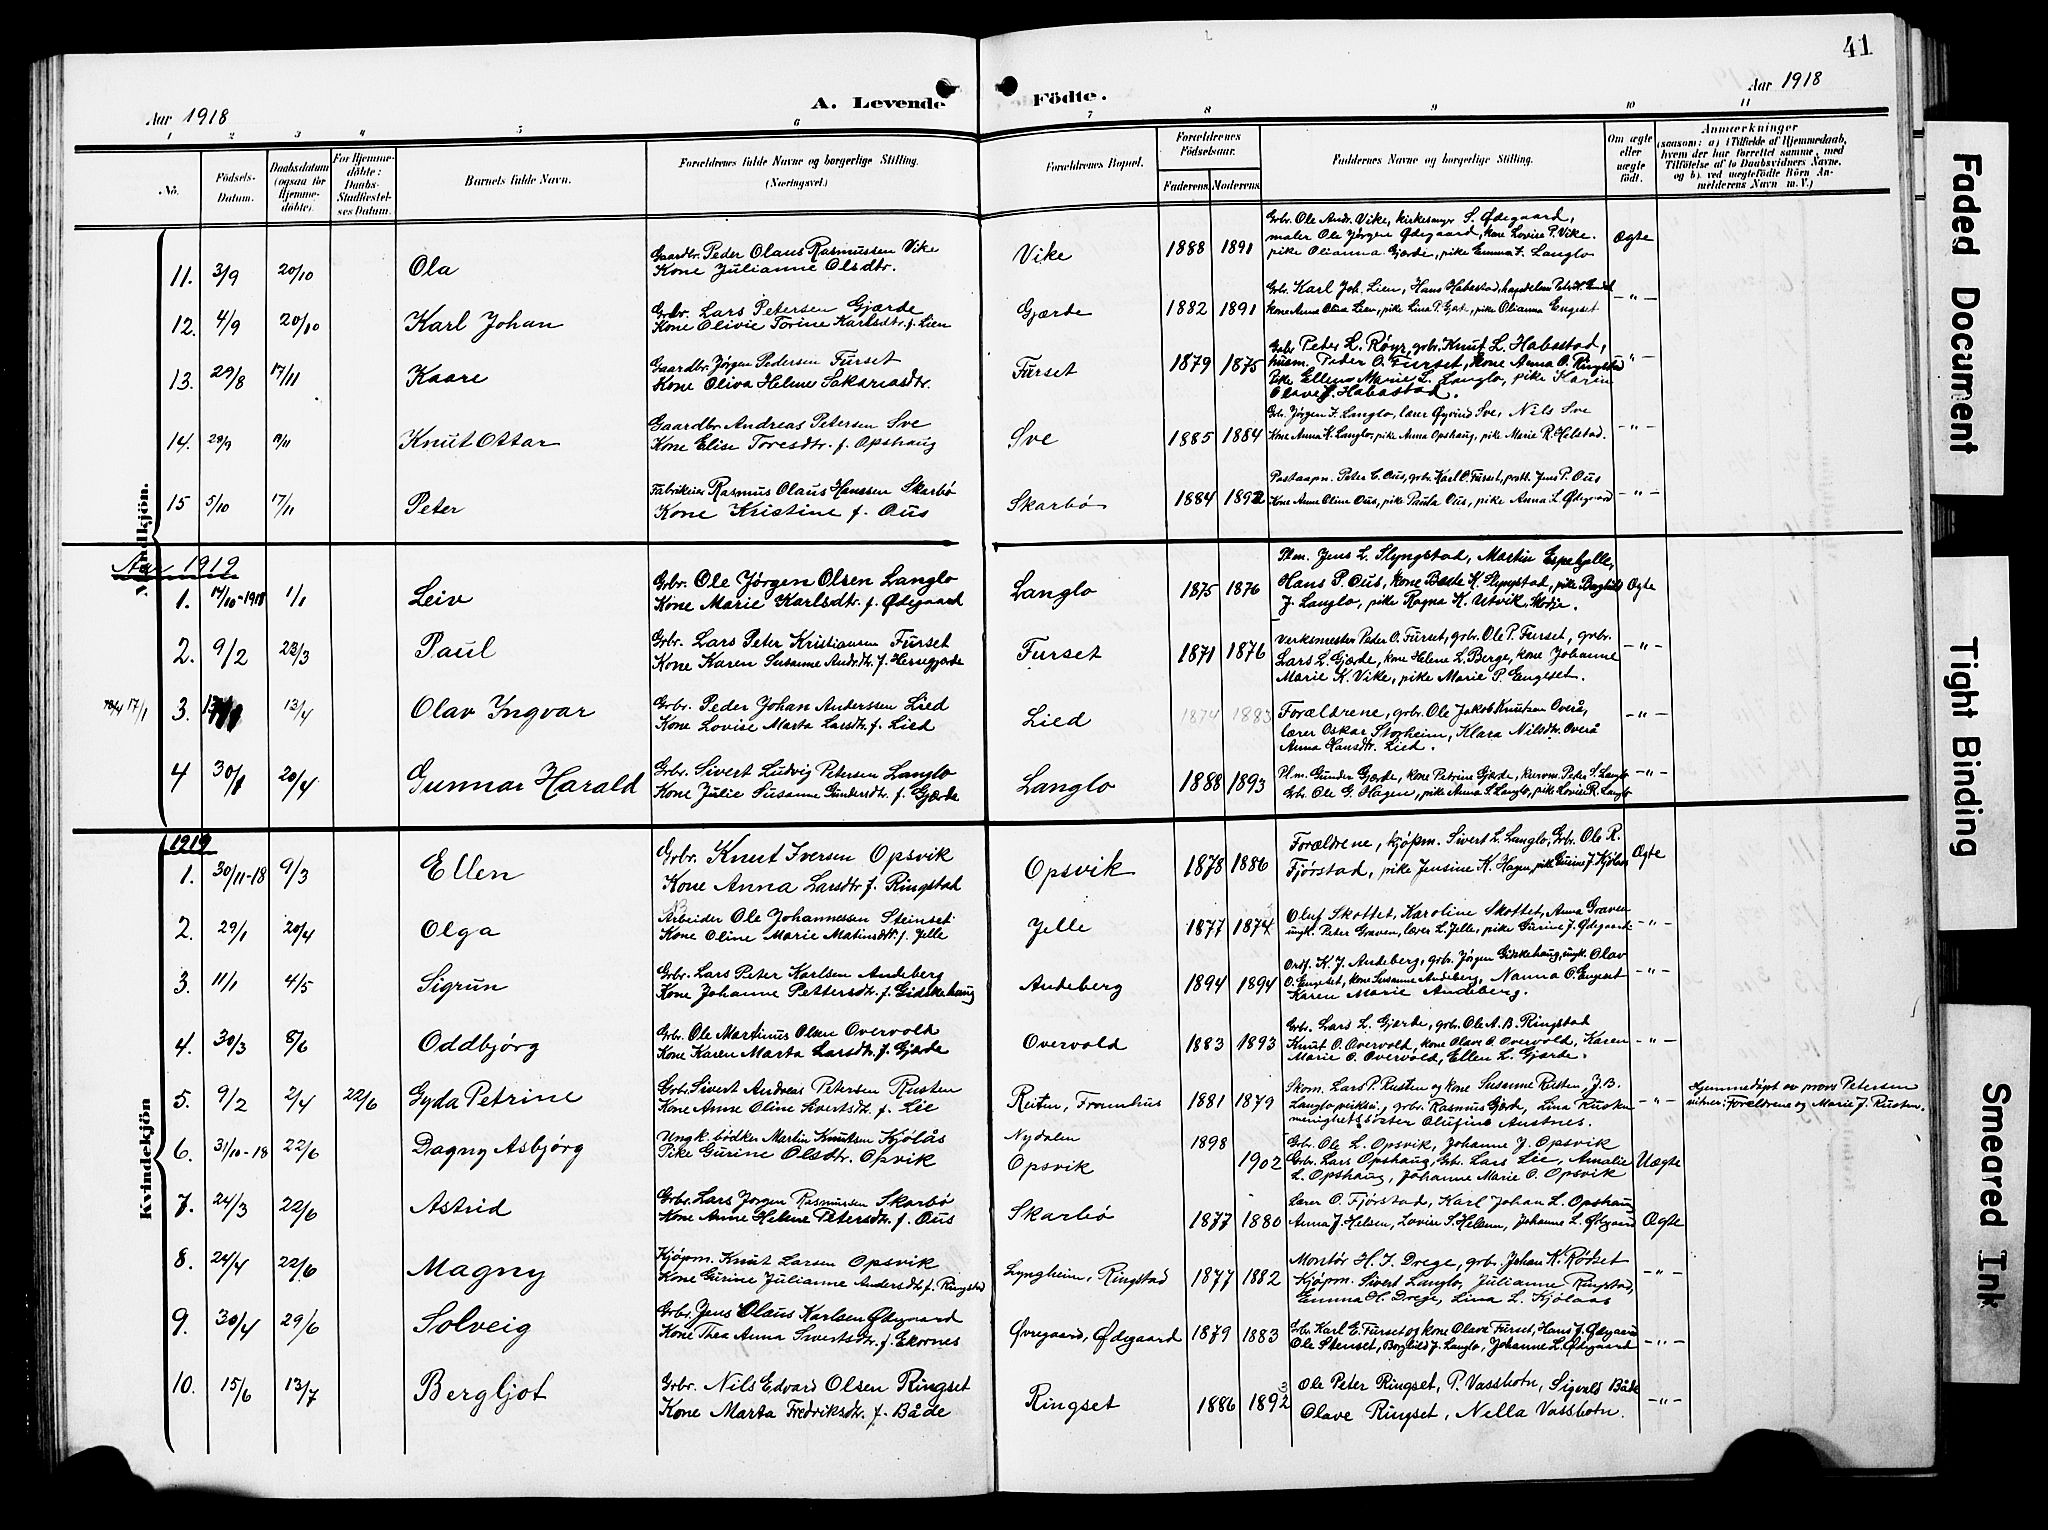 41
Aar 1918
A. Levende Födte.
Aar 1918
1 2 3 4 5 6 7 8 9 10 11
No.
Födsels-
Datum.
Daabsdatum
(ogsaa for
Hjemme-
döbte).
For Hjemme-
döbte:
Daabs-
Stadfæstel-
ses Datum.
Barnets fulde Navn.
Forældrenes fulde Navne og borgerlige Stilling.
(Næringsvei.)
Forældrenes Bopæl.
Forældrenes
Födselsaar.
Faderens Moderens
Faddernes Navne og borgerlige Stilling.
Om ægte
eller
uægte
födt.
Anmærkninger
(saasom: a) i Tilfælde af Hjemmedaab,
hvem der har forrettet samme, med
Tilföielse af to Daabsvidners Navne,
og b) ved uægtefödte Börn An-
melderens Navn m. V.)
Mandkjön.
11. 3/9 20/10 Ola
Gaardbr. Peder Olaus Rasmussen Vike
Kone Julianne Olsdtr.
Vike 1888 1891
Grbr. Ole Andr. Vike, kirkesanger S. Ødegaard,
maler Ole Jørgen Ødegaard, kone Lovise P. Vike.
pike Olianna Gjærde, pike Emma F. Langlo
Ægte
12. 4/9 20/10 Karl Johan
Grbr. Lars Petersen Gjærde
Kone Olivie Torine Karlsdtr. f. Lien
Gjærde 1882 1891
Grbr. Karl Joh. Lien, Hans Habostad,
kone Anna Oline Lien, pike Lina P. Gjærde, pike Olianna Engeset
-"-
13. 29/8 17/11 Kaare
Gaardbr. Jørgen Pedersen Furset
Kone Oliva Helene Sakariasdtr.
Furset 1879 1875
Grbr. Peter L. Røyr, grbr. Knut L. Habostad,
husm. Peder O. Furset, kone Anna O. Ringstad
Pike Ellen Marie L. Langlo, pike Karin
Olave J. Habostad.
-"-
14. 17/11 Knut Ottar
Gaardbr Andreas Petersen Sve
Kone Elise Toresdtr. f. Opshaug
Sve 1885 1884
Grbr. Jørgen F. Langlo, lærer Øyvind Sve, Nils Sve
Kone Anna K. Langlo, pike Anna Opshaug, pike Marie R. Helstad.
-"-
15 5/10 17/11 Peter
Fabrikeier Rasmus Olaus Hanssen Skarbø
Kone Kristine f. Ous
Skarbø 1884 1892
Postaapn. Peter C. Ous, grbr. Karl O. Furset, Jens P. Ous
Kone Anne Oline Ous, pike Paula Ous, pike Anna L. Ødegaard
-"-
Aar 1919
1. 17/10-1918 1/1 Leiv
Grbr. Ole Jørgen Olsen Langlo
Kone Marie Karlsdtr. f. Ødegaard
Langlo 1875 1876
Plm. Jens L. Slyngstad, Martin Espehjelle,
Hans P. Ous, kone Beate K. Slyngstad, pike Borghild
J. Langlo, pike Ragna K. Utvik, Skodje.
Ægte
2. 9/2 23/3 Paul
Grbr. Lars Peter Kristiansen Furset
Kone Karen Susanne Andrdtr. f. Hessegjærde
Furset 1871 1876
Verksmester Peder O. Furset, grbr. Ole P. Furset, grbr.
Lars L. Gjærde, kone Helene L. Berge, kone Johanne
Marie K. Vike, pike Marie P. Engeset.
-"-
17/1 3. 13/4 Olav Ingvar
Grbr. Peder Johan Anderssen Lied
Kone Lovise Marta Larsdtr. f. Lied
Lied 1874 1883
Forældrene, grbr. Ole Jakob Knutsen Overå,
lærer Oskar Storheim, Klara Nilsdtr. Overå
Anna Hansdtr. Lied.
-"-
4 30/1 20/4 Gunnar Harald
Grbr. Sivert Ludvig Petersen Langlo
Kone Julie Susanne Gundersdtr. f. Gjærde
Langlo 1888 1893
Plm. Gunder Gjærde, kone Petrine Gjærde, Peter S. Langlo
Grbr. Ole G. Hagen, pike Anna S. Langlo, pike Lovise R. Langlo
-"-
1919
Kvindekjön
1. 30/11-18 9/3 Ellen
Grbr. Knut Iversen Opsvik
Kone Anna Larsdtr f. Ringstad
Opsvik 1878 1886
Forældrene, kjøpm. Sivert L. Langlo, Grbr. Ole R.
Fjørstad, pike Jensine K. Hagen, pike Gurine J. Kjølaas
Ægte
2. 29/1 20/4 Olga
Arbeider Ole Johannessen Steinset
Kone Oline Marie Matinsdtr. f. Jelle
Jelle 1877 1874
Oluf Skottet, Karoline Skottet, Anna Graven
ungk. Peter Graven, lærer L. Jelle, pike Gurine J. Ødegaard
-"-
3. 11/1 4/5 Sigrun
Grbr. Lars Peter Karlsen Andeberg
Kone Johanne Pettersdtr. f. Gidskehaug
Andeberg 1894 1894
Ordf. K. J. Andeberg, grbr. Jørgen Gidskehaug, ungk. Olav
O. Engeset, kone Susanne Andeberg, Nanna O. Engeset
Karen Marie Andeberg.
-"-
4. 30/3 8/6 Oddbjørg
Grbr. Ole Martinus Olsen Overvold
Kone Karen Marta Larsdtr. f. Gjærde
Overvold 1883 1893
Grbr. Lars L. Gjærde, grbr. Ole A. B. Ringstad
Knut O. Overvold, kone Olave O. Overvold, Karen
Marie O. Overvold, Ellen L. Gjærde.
-"-
5. 9/2 2/4 22/6 Gyda Petrine
Grbr. Sivert Andreas Petersen Rusten
Kone Anne Oline Sivertsdtr. f. Lie
Reiten, Framhus 1881 1879
Skom. Lars P. Rusten og kone Susanne Rusten, J. B.
Langlo, grbr. Rasmus Gjærde, Lina Rusten
menighetssøster Olufine Austnes.
-"-
Hjemmedøpt av provs Petersen
vitner: Foreldrene og Marie J. Rusten.
6. 31/10-18 22/6 Dagny Asbjørg
Ungk. bødker Martin Knutsen Kjølås
Pike Gurine Olsdtr. Opvik
Nydalen 1898
Opsvik 1902
Grbr. Ole L. Opsvik, Johanne J. Opsvik
Grbr. Lars Opshaug, Grb. Lars Lie, Amalie
L. Opshaug, Johanne Marie O. Opsvik
Uægte
7. 24/3 22/6 Astrid
Grbr. Lars Jørgen Rasmussen Skarbø
Kone Anne Helene Petersdtr. f. Ous
Skarbø 1877 1880
Lærer O. Fjørstad, Karl Johan L. Opshaug
Anna J. Helsen, Lovise S. Helsem, Johanne L. Ødegaard
Ægte
8. 24/4 22/6 Magny
Kjøpm. Knut Larsen Opsvik
Kone Gurine Julianne Andersdtr. f. Ringstad
Lyngheim, Ringstad 1877 1882
Montør H. J. Drege, grb. Johan K. Rødset
Kjøpm. Sivert Langlo, Julianne Ringstad,
Emma H. Drege, Lina L. Kjølaas
-"-
9. 30/4 29/6 Solveig
Grbr. Jens Olaus Karlsen Ødegaard
Kone Thea Anna Sivertsdtr. f. Ekornes
Øvregaard, Ødegaard 1879 1883
Grbr. Karl E. Furset og kone Olave Furset, Hans J. Ødegaard
Ole Stenset, Borghild J. Langlo, Johanne L. Ødegaard
-"-
10. 15/6 13/7 Bergljot
Grbr. Nils Edvard Olsen Ringset
Kone Marta Fredriksdtr. f. Både
Ringset 1886 1892
Ole Peter Ringset, P. Vassbotn, Sigvald Både
Olave Ringset, Nella Vassbotn.
-"-
Faded Document
Tight Binding
Smeared Ink